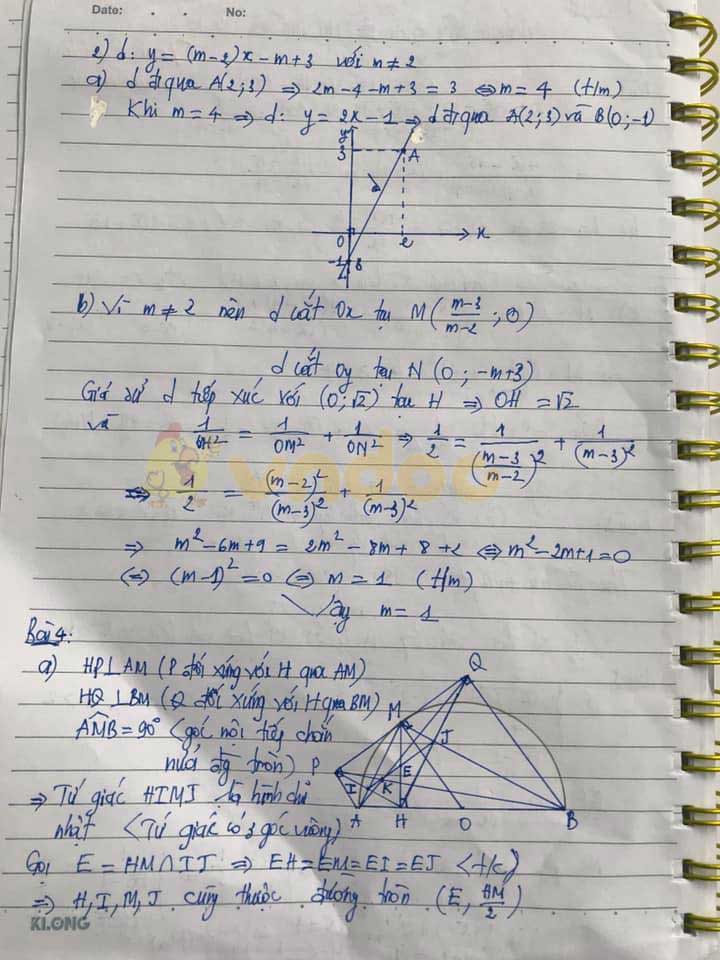 Date: . . No:
2) d: y = (m-2)x - m+3 với m ≠ 2
a) d đi qua A(2;3) => 2m-4-m+3 = 3 <=> m = 4 (t/m)
Khi m = 4 => d: y = 2x-1 => d đi qua A(2;3) và B(0;-1)
y
3
A
d
0
2
x
-1
B
b) Vì m ≠ 2 nên d cắt Ox tại M(\frac{m-3}{m-2}; 0)
d cắt Oy tại N (0; -m+3)
Giả sử d tiếp xúc với (0; √2) tại H => OH = √2
và \frac{1}{OH^2} = \frac{1}{OM^2} + \frac{1}{ON^2} => \frac{1}{2} = \frac{1}{(\frac{m-3}{m-2})^2} + \frac{1}{(m-3)^2}
=> \frac{1}{2} = \frac{(m-2)^2}{(m-3)^2} + \frac{1}{(m-3)^2}
=> m^2-6m+9 = 2m^2-8m+8+2 <=> m^2-2m+1=0
<=> (m-1)^2=0 <=> m = 1 (t/m)
Vậy m = 1
Bài 4:
a) HP⊥AM (P đối xứng với H qua AM)
HQ⊥BM (Q đối xứng với H qua BM)
AMB = 90° <góc nội tiếp chắn
nửa đg tròn)
=> Tứ giác HIMJ là hình chữ
nhật <Tứ giác có 3 góc vuông)
Q
M
J
P
E
I
K
A
H
O
B
Gọi E = HM∩IJ => EH=EM=EI=EJ <t/c)
=> H,I,M,J cùng thuộc đường tròn (E, \frac{HM}{2})
KI.ONG
vndoc